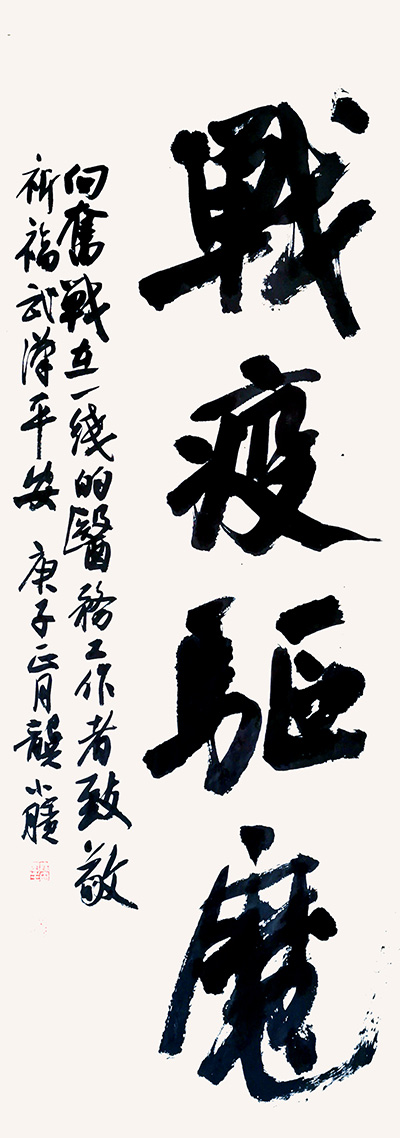 戰疫驅魔
向奮戰在一綫的醫務工作者致敬
祈福武漢平安 庚子正月龔小膑